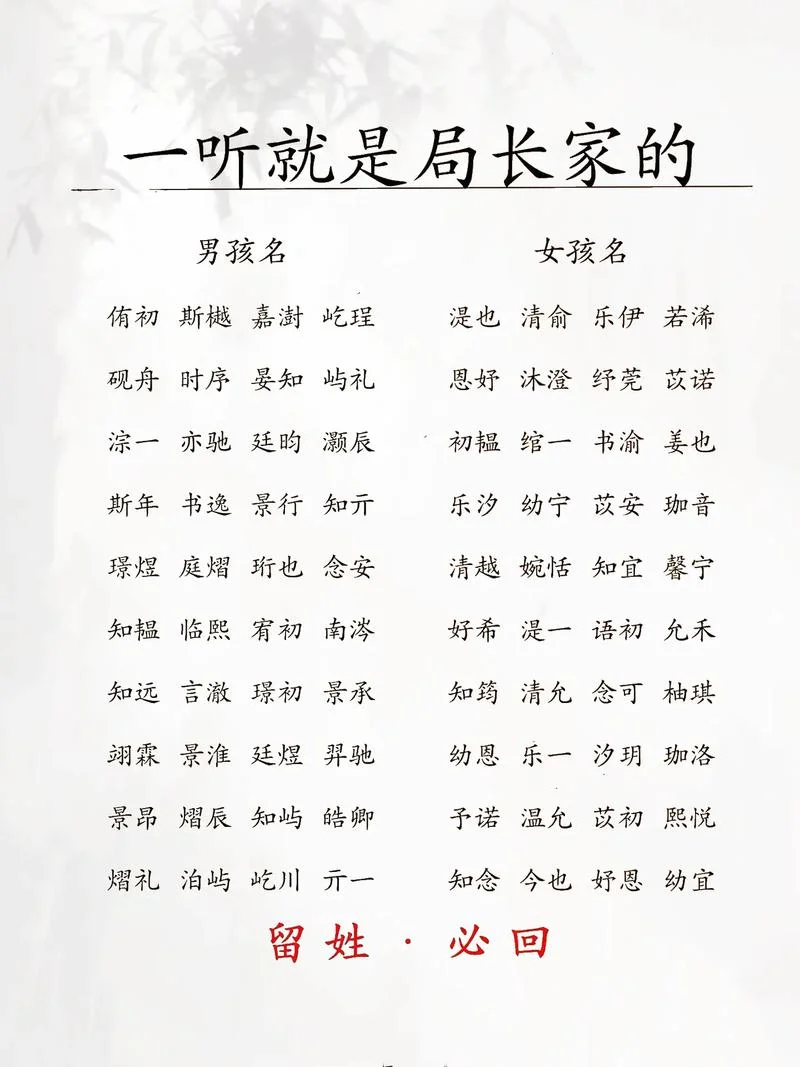 一听就是局长家的
男孩名
侑初 斯樾 嘉澍 屹珵
砚舟 时序 晏知 屿礼
淙一 亦驰 廷昀 灏辰
斯年 书逸 景行 知亓
璟煜 庭熠 珩也 念安
知韫 临熙 宥初 南涔
知远 言澈 璟初 景承
翊霖 景淮 廷煜 羿驰
景昂 熠辰 知屿 皓卿
熠礼 泊屿 屹川 亓一
女孩名
湜也 清俞 乐伊 若浠
恩妤 沐澄 纾莞 苡诺
初韫 绾一 书渝 姜也
乐汐 幼宁 苡安 珈音
清越 婉恬 知宜 馨宁
好希 湜一 语初 允禾
知筠 清允 念可 柚琪
幼恩 乐一 汐玥 珈洛
予诺 温允 苡初 熙悦
知念 今也 妤恩 幼宜
留姓·必回